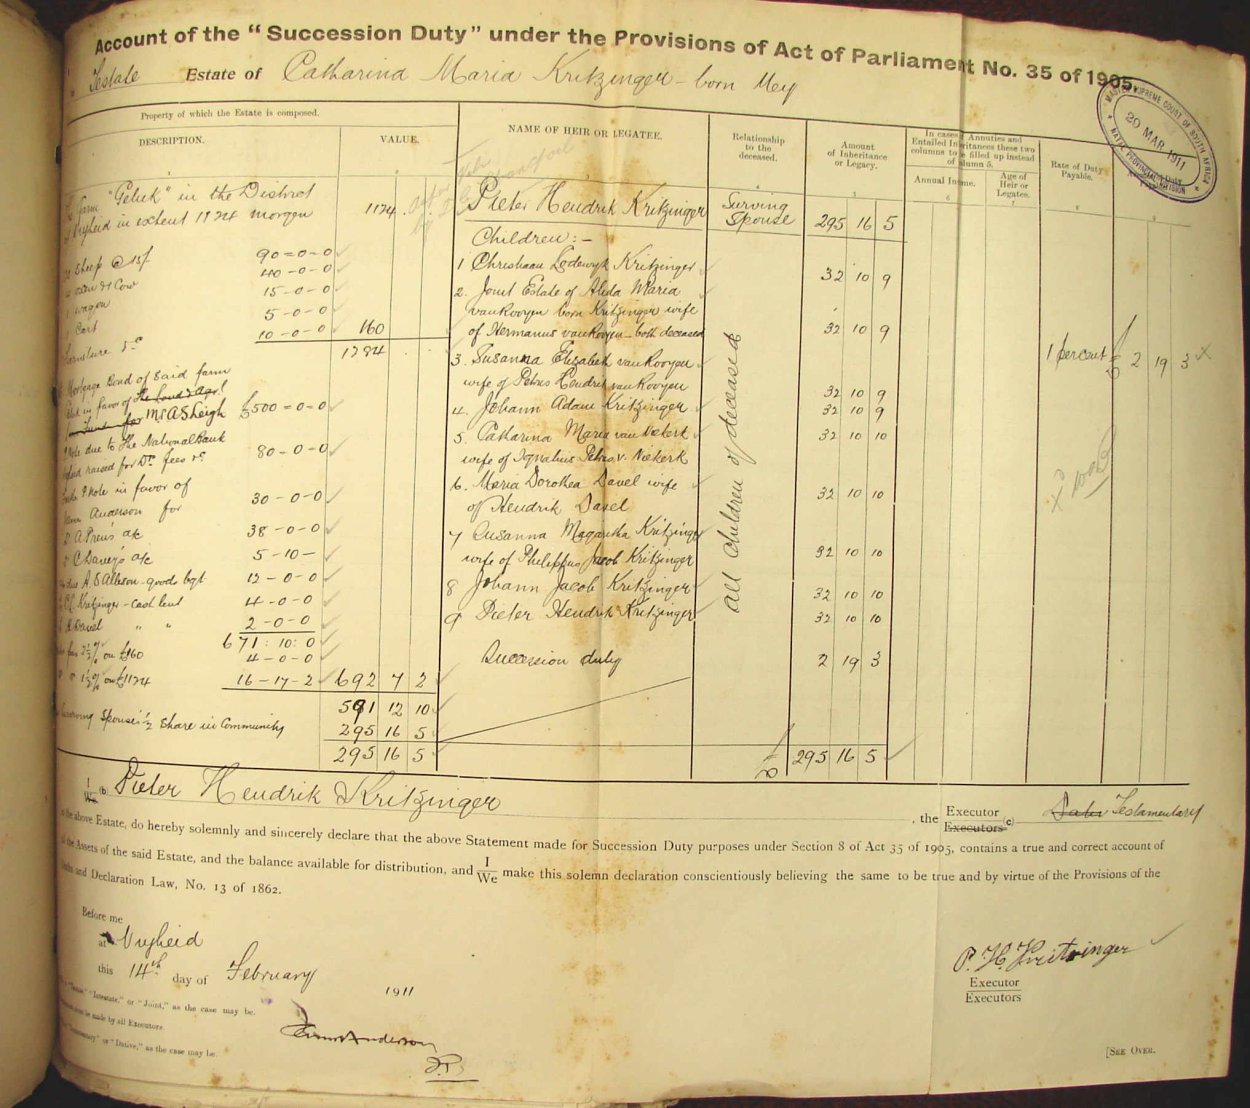 Account of the "Succession Duty" under the Provisions of Act of Parliament No. 35 of 1905.
Testate Estate of Catharina Maria Kritzinger - born Mey
MASTER SUPREME COURT OF SOUTH AFRICA
20 MAR 1911
NATAL PROVINCIAL DIVISION
Property of which the Estate is composed.
DESCRIPTION. VALUE.
NAME OF HEIR OR LEGATEE.
Relationship to the deceased.
Amount of Inheritance or Legacy.
In cases Entailed Inheritances these two columns to be filled up instead of column 5.
Annuities and
Annual Income.
Age of Heir or Legatee.
Rate of Duty Payable.
farm "Geluk" in the District
Vryheid in extent 1124 morgen 1124
Sheep @ 15/ 90=0=0
oxen & 1 Cow 40-0-0
wagon 15-0-0
Cart 5-0-0
Furniture &c 10-0-0 160
1284
Mortgage Bond of said farm
in favor of the Land & Agrl
Fund for Mr A S Leigh £500=0=0
Note due to The National Bank
raised for Dr. fees &c 80-0-0
Note in favor of
Anderson for 30-0-0
A Prein's a/c 38-0-0
C Davey's a/c 5-10-
A. S Allison - goods bgt 12-0-0
Kritzinger - cash lent 4-0-0
Davel " " 2-0-0
671:10:0
2½% on £160 4-0-0
1½% on £1124 16-17-2 692 7 2
591 12 10
Surviving Spouse's ½ Share in Community 295 16 5
295 16 5
Pieter Hendrik Kritzinger Surving Spouse 295 16 5
Children:-
1 Christiaan Lodewyk Kritzinger 32 10 9
2. Joint Estate of Aleda Maria
van Rooyen born Kritzinger wife
of Hermanus van Rooyen - both deceased 32 10 9
3. Susanna Elizabeth van Rooyen
wife of Petrus Hendrik van Rooyen 32 10 9
4. Johann Adam Kritzinger 32 10 9
5. Catharina Maria van Niekerk 32 10 10
wife of Ignatius Petrus v. Niekerk
6. Maria Dorothea Davel wife
of Hendrik Davel 32 10 10
7 Susanna Magaretha Kritzinger
wife of Philippus Jacob Kritzinger 32 10 10
8 Johann Jacob Kritzinger 32 10 10
9 Pieter Hendrik Kritzinger 32 10 10
all children of deceased
Succession duty 2 19 3
£ 295 16 5
1 percent £ 2 19 3 x
I We (b) Pieter Hendrik Kritzinger, the Executor Executors (c) Dativ Testamentary
the above Estate, do hereby solemnly and sincerely declare that the above Statement made for Succession Duty purposes under Section 8 of Act 35 of 1905, contains a true and correct account of
the Assets of the said Estate, and the balance available for distribution, and I We make this solemn declaration conscientiously believing the same to be true and by virtue of the Provisions of the
and Declaration Law, No. 13 of 1862.
Before me
at Vryheid
this 14th day of February 1911
"Intestate," or "Joint," as the case may be.
be made by all Executors.
"Testamentary" or "Dative," as the case may be.
Anderson
J.P.
P. H. Kritzinger
Executor
Executors
[SEE OVER.